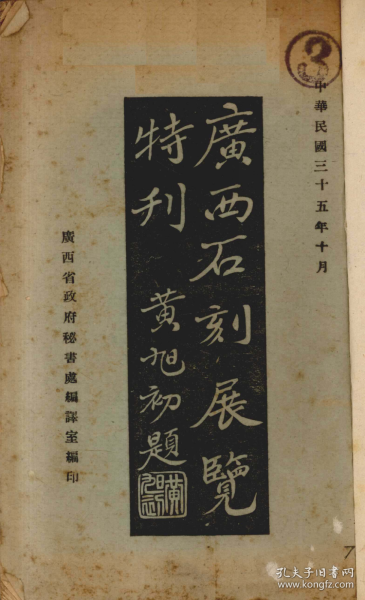 3
中華民國三十五年十月
廣西石刻展覽
特刊 黄旭初題
廣西省政府秘書處編譯室編印
7
孔夫子旧书网